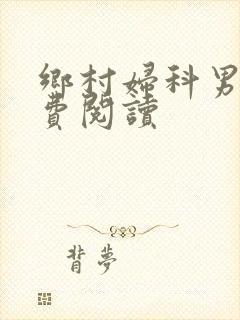 鄉村婦科男
費閱讀
背夢